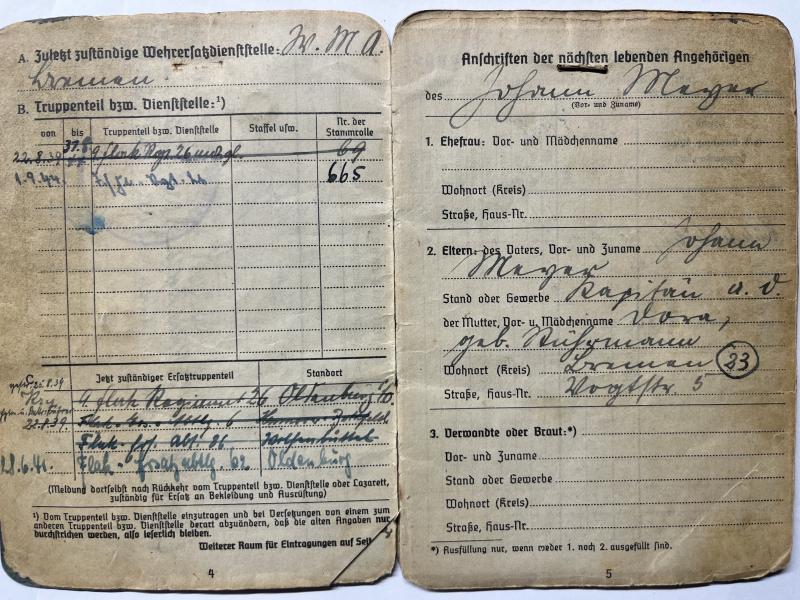 A. Zuletzt zuständige Wehrersatzdienststelle: W. M. A.
Bremen.
B. Truppenteil bzw. Dienststelle:¹)
von bis Truppenteil bzw. Dienststelle Staffel usw. Nr. der Stammrolle
22.8.39 31.8. Flak Rgt. 26 69
1.9.44. 665
Jetzt zuständiger Ersatztruppenteil Standort
25.8.39 4 Flak Regiment 26 Oldenburg i/O.
22.8.39 6
Flak 26 Wolfenbüttel
28.6.41. Flak-Ersatzabtlg. 62 Oldenburg
(Meldung dortselbst nach Rückkehr vom Truppenteil bzw. Dienststelle oder Lazarett,
zuständig für Ersatz an Bekleidung und Ausrüstung)
¹) Vom Truppenteil bzw. Dienststelle einzutragen und bei Versetzungen von einem zum
anderen Truppenteil bzw. Dienststelle derart abzuändern, daß die alten Angaben nur
durchstrichen werden, also leserlich bleiben.
Weiterer Raum für Eintragungen auf
4
Anschriften der nächsten lebenden Angehörigen
des Johann Meyer
(Vor- und Zuname)
1. Ehefrau: Vor- und Mädchenname
Wohnort (Kreis)
Straße, Haus-Nr.
2. Eltern: des Vaters, Vor- und Zuname Johann
Meyer
Stand oder Gewerbe Kapitän a. D.
der Mutter, Vor- u. Mädchenname Dora,
geb. Stührmann
Wohnort (Kreis) Bremen 23
Straße, Haus-Nr. Vogtstr. 5
3. Verwandte oder Braut:*)
Vor- und Zuname
Stand oder Gewerbe
Wohnort (Kreis)
Straße, Haus-Nr.
*) Ausfüllung nur, wenn weder 1. noch 2. ausgefüllt sind.
5